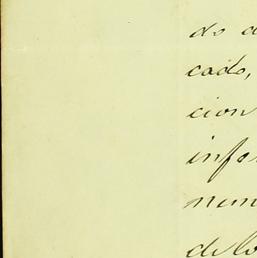 do d
cado,
cion
infor
num
de lo